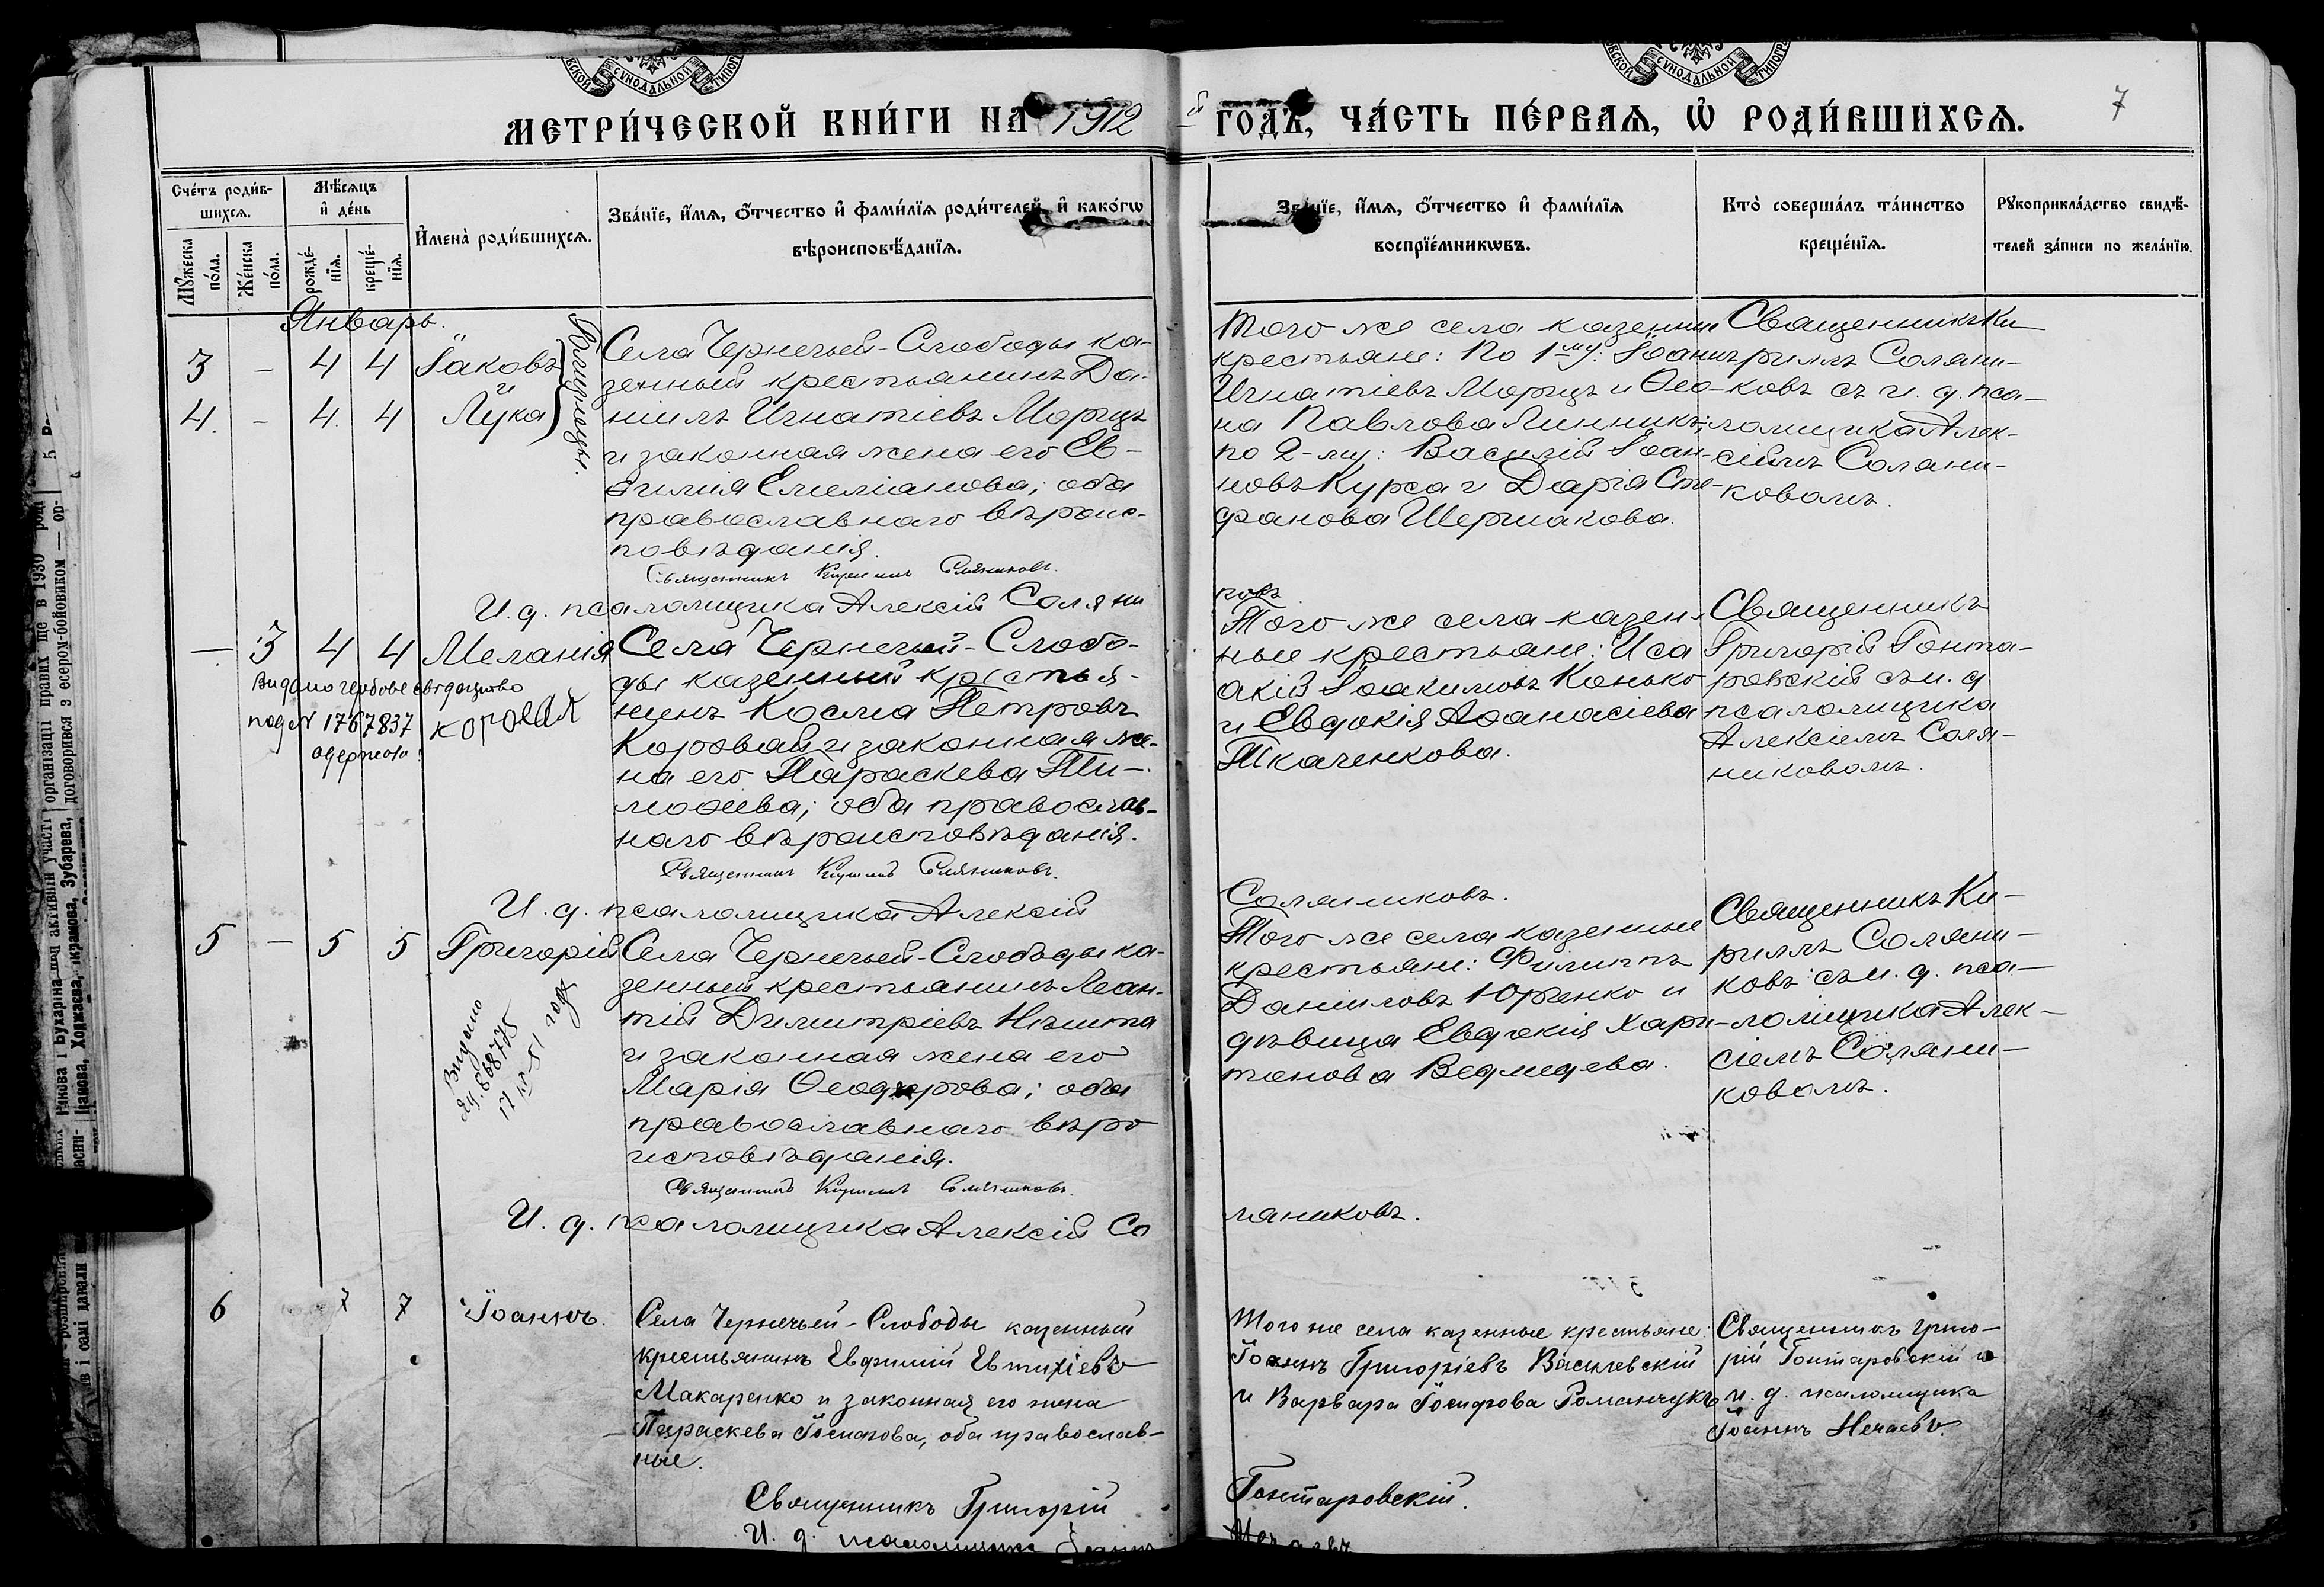 МЕТРИ́ЧЕСКОЙ КНИ́ГИ НА 1912 й ГОДЪ, ЧА́СТЬ ПЕ́РВАЯ, Ѡ҆ РОДИ́ВШИХСЯ.
7
Сче́тъ роди́в-
шихся.
Мꙋ́жеска по́ла.
Же́нска по́ла.
Мѣ́сяцъ
и҆ де́нь
рожде́-
нїя.
креще́-
нїя.
И҆мена̀ роди́вшихся.
Зва́нїе, и҆́мя, ѻ҆́тчество и҆ фами́лїя роди́телей, и҆ како́гѡ
вѣроисповѣ́данїя.
Зва́нїе, и҆́мя, ѻ҆́тчество и҆ фами́лїя
воспрїе́мникѡвъ.
Кто̀ соверша́лъ та́инство
креще́нїя.
Рꙋкоприкла́дство свидѣ́-
телей за́писи по жела́нїю.
Январь.
3 - 4 4 Іаковъ
4. - 4. 4 Лука
Близнецы.
Села Чернечьей-Слободы ка-
зенный крестьянинъ Да-
ніилъ Игнатіевъ Морзъ
и законная жена его Ев-
фимія Емеліанова; оба
православнаго вѣроис-
повѣданія.
Священникъ Кириллъ Соляниковъ.
И. д. псаломщика Алексій Соляни
Того же села казенные
крестьяне: По 1му: Іоаннъ
Игнатіевъ Морзъ и Ѳео-
на Павлова Линникъ;
по 2-му: Василій Іоан-
новъ Курса и Дарія Сте-
фанова Шермакова.
Священникъ Ки
риллъ Соляни-
ковъ съ и. д. пса-
ломщика Алек-
сіемъ Соляни-
ковымъ.
ковъ
- 3 4 4 Меланія
Видано гербове свідоцтво
под № 1767837
одержав:
Коровай
Села Чернечьей-Слобо-
ды казенный крестья-
нинъ Косма Петровъ
Коровай и законная же-
на его Параскева Ти-
моѳеева; оба православ-
наго вѣроисповѣданія.
Священникъ Кириллъ Соляниковъ.
И. д. псаломщика Алексій
Того же села казен-
ные крестьяне: Иса
акій Іоакимовъ Конько
и Евдокія Аѳанасіева
Ткаченкова.
Священникъ
Григорій Гонта-
ровскій съ и. д
псаломщика
Алексіемъ Соля-
никовымъ.
Соляниковъ.
5 - 5 5 Григорій
Видано
17
51 году
Села Чернечьей-Слободы ка-
зенный крестьянинъ Леон-
тій Димитріевъ Нѣшта
и законная жена его
Марія Ѳеодорова; оба
православнаго вѣро
исповѣданія.
Священникъ Кириллъ Соляниковъ.
И. д. псаломщика Алексій Со
Того же села казенные
крестьяне: Филиппъ
Даніиловъ Юрченко и
дѣвица Евдокія Хари-
тонова Ведмедева.
Священникъ Ки-
риллъ Соляни-
ковъ съ и. д. пса-
ломщика Алек-
сіемъ Соляни-
ковымъ.
ляниковъ.
6 7 7 Іоаннъ.
Села Чернечьей-Слободы казенный
крестьянинъ Евфимій Евтихіевъ
Макаренко и законная его жена
Параскева Іосифова, оба православ-
ные.
Священникъ Григорій
И. д. псаломщика Іоаннъ
Того же села казенные крестьяне:
Іоаннъ Григоріевъ Василевскій
и Варвара Іосифова Романчукъ
Священникъ Григо-
рій Гонтаровскій и
и. д. псаломщика
Іоаннъ Нечаевъ.
Гонтаровскій.
Нечаевъ